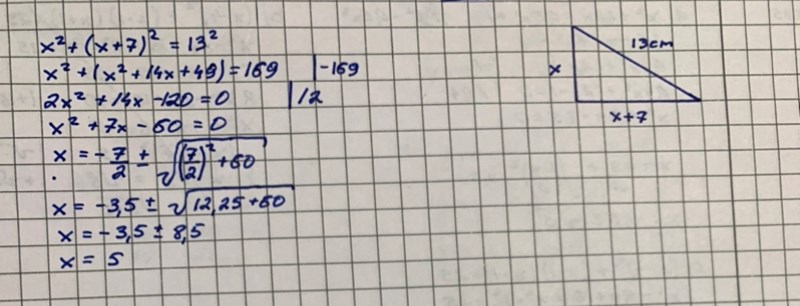 x² + (x+7)² = 13²
x² + (x² + 14x + 49) = 169 |-169
2x² + 14x - 120 = 0 |/2
x² + 7x - 60 = 0
x = -7/2 ± √((7/2)² + 60)
x = -3,5 ± √(12,25 + 60)
x = -3,5 ± 8,5
x = 5
13cm
x
x+7